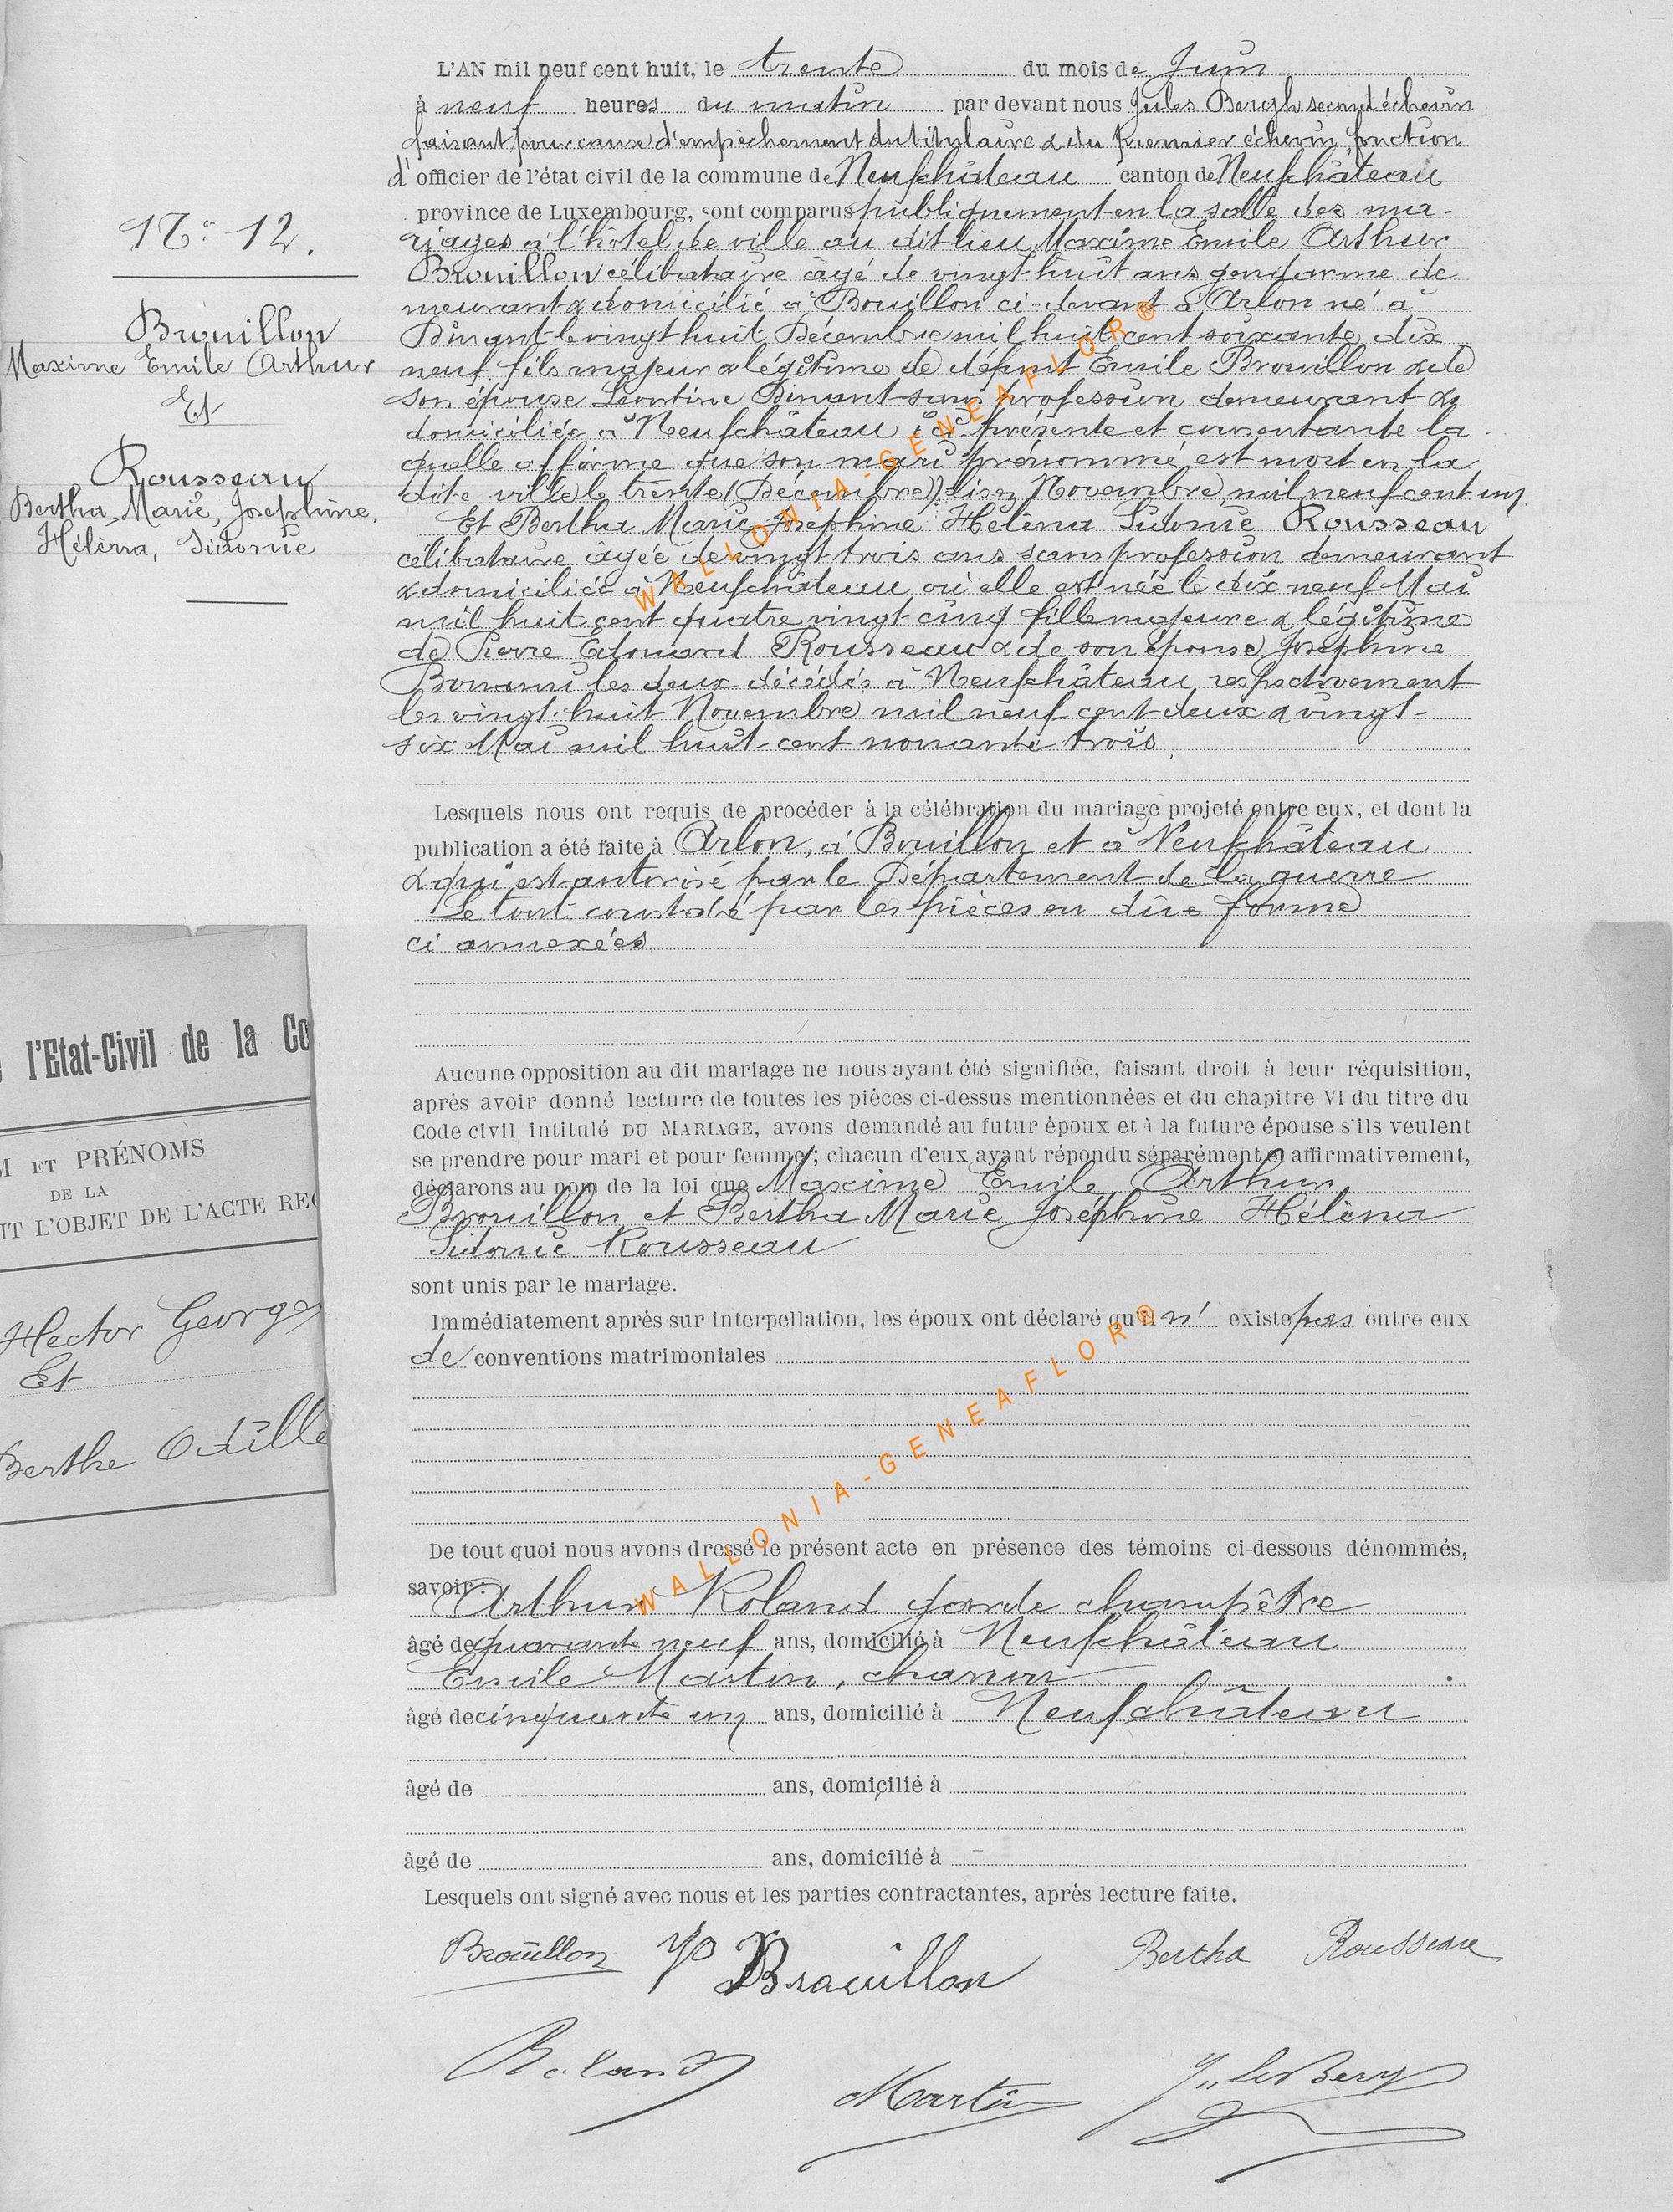 N° 12.
Brouillon
Maxime Emile Arthur
Et
Rousseau
Bertha, Marie, Joséphine,
Hélèna, Sidonie
L'AN mil neuf cent huit, le trente du mois de Juin
à neuf heures du matin par devant nous Jules Bergh second échevin
faisant pour cause d'empêchement du titulaire & du premier échevin, fonction
d'officier de l'état civil de la commune de Neufchâteau canton de Neufchâteau
province de Luxembourg, sont comparus publiquement en la salle des ma-
riages à l'hôtel de ville au dit lieu Maxime Emile Arthur
Brouillon célibataire âgé de vingt huit ans gendarme de
meurant & domicilié à Bouillon ci-devant à Arlon né à
Dinant le vingt huit Décembre mil huit cent soixante dix
neuf, fils majeur & légitime de défunt Emile Brouillon & de
son épouse Léontine Dinant sans profession demeurant &
domiciliée à Neufchâteau ici présente et consentante la
quelle affirme que son mari prénommé est mort en la
dite ville le trente (Décembre), lisez Novembre mil neuf cent un.
Et Bertha Marie Joséphine Hélèna Sidonie Rousseau
célibataire âgée de vingt trois ans sans profession demeurant
& domiciliée à Neufchâteau où elle est née le dix neuf Mai
mil huit cent quatre vingt-cinq fille majeure & légitime
de Pierre Edouard Rousseau & de son épouse Joséphine
les deux décédés à Neufchâteau respectivement
les vingt-huit Novembre mil neuf cent deux & vingt-
six Mai mil huit-cent nonante trois.
Lesquels nous ont requis de procéder à la célébration du mariage projeté entre eux, et dont la
publication a été faite à Arlon, à Bouillon et à Neufchâteau
& qui est autorisé par le Département de la guerre
Le tout constaté par les pièces en dûe forme
ci annexées
e l'Etat-Civil de la Co
M ET PRÉNOMS
DE LA
IT L'OBJET DE L'ACTE REC
Hector Georges
Et
Berthe Odille
Aucune opposition au dit mariage ne nous ayant été signifiée, faisant droit à leur réquisition,
après avoir donné lecture de toutes les pièces ci-dessus mentionnées et du chapitre VI du titre du
Code civil intitulé DU MARIAGE, avons demandé au futur époux et à la future épouse s'ils veulent
se prendre pour mari et pour femme ; chacun d'eux ayant répondu séparément et affirmativement,
déclarons au nom de la loi que Maxime Emile Arthur
Brouillon et Bertha Marie Joséphine Hélèna
Sidonie Rousseau
sont unis par le mariage.
Immédiatement après sur interpellation, les époux ont déclaré qu'il n' existe pas entre eux
de conventions matrimoniales
De tout quoi nous avons dressé le présent acte en présence des témoins ci-dessous dénommés,
savoir : Arthur Roland garde champêtre
âgé de quarante neuf ans, domicilié à Neufchâteau
Emile Martin, charron
âgé de cinquante un ans, domicilié à Neufchâteau
âgé de ans, domicilié à
âgé de ans, domicilié à
Lesquels ont signé avec nous et les parties contractantes, après lecture faite.
Brouillon Brouillon Bertha Rousseau
Roland
Martin
WALLONIA-GENEAFLOR®
WALLONIA-GENEAFLOR®